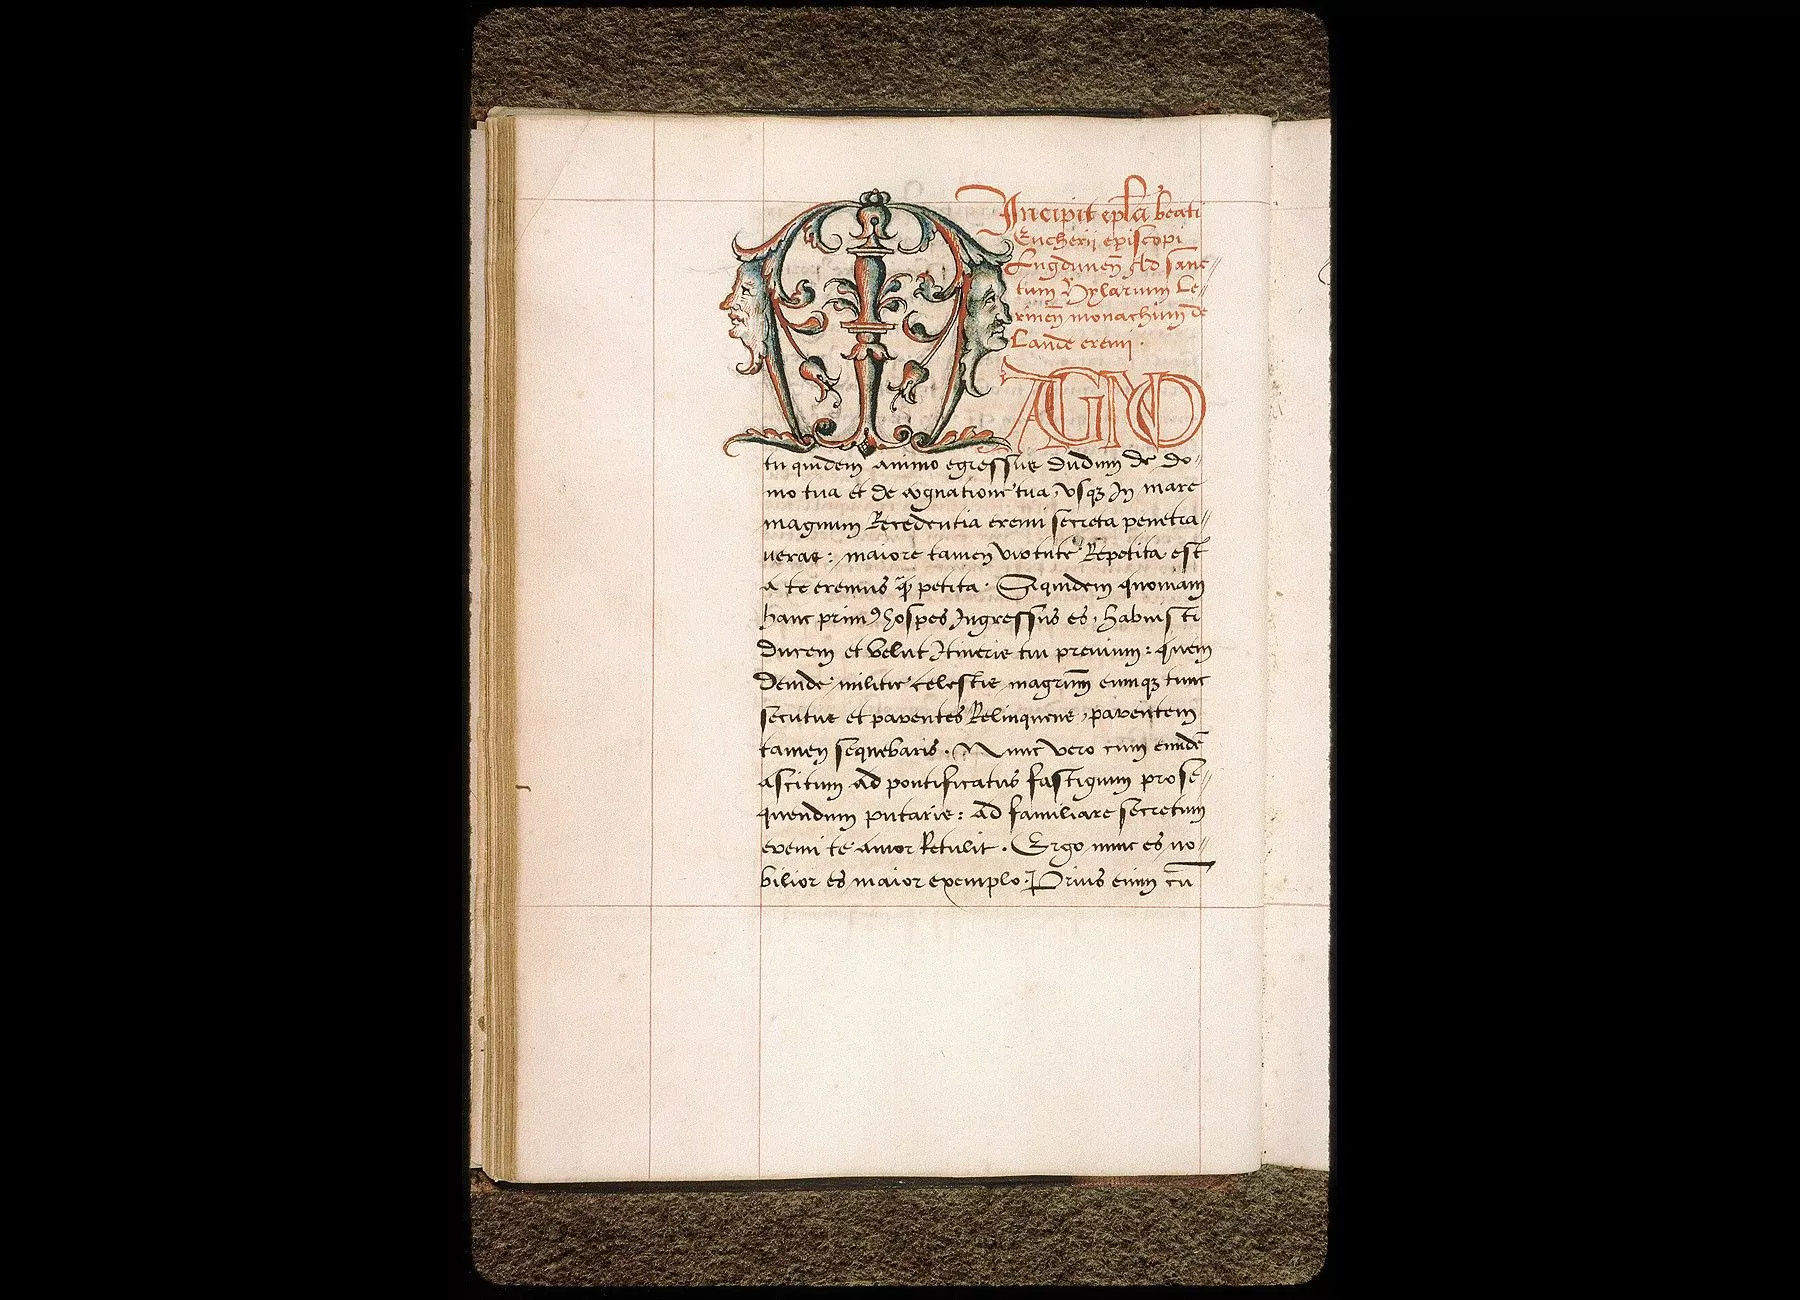 Incipit epl̄a beati
Eucherij episcopi
Lugdunen̄ Ad sanc⸗
tum Hylarium Le⸗
rinen̄ monachum de
Laude eremi.
MAGNO
tu quidem animo egressus dudum de do⸗
mo tua et de cognatione tua, vsqꝫ In mare
magnum Recedentia eremi secreta penetra⸗
ueras: maiore tamen virtute Repetita est
a te eremus q̄ petita. Siquidem quoniam
hanc primꝰ hospes Ingressus es, habuisti
ducem et velut Itineris tui preuium: quem
deinde militie celestis magrūm eumqꝫ tunc
secutus et parentes Relinquens, parentem
tamen sequebaris. Nunc vero cum eundē
ascitum ad pontificatus fastigium prose⸗
quendum putaris: ad familiare secretum
eremi te amor Retulit. Ergo nunc es no⸗
bilior es maior exemplo. Prius enim cū